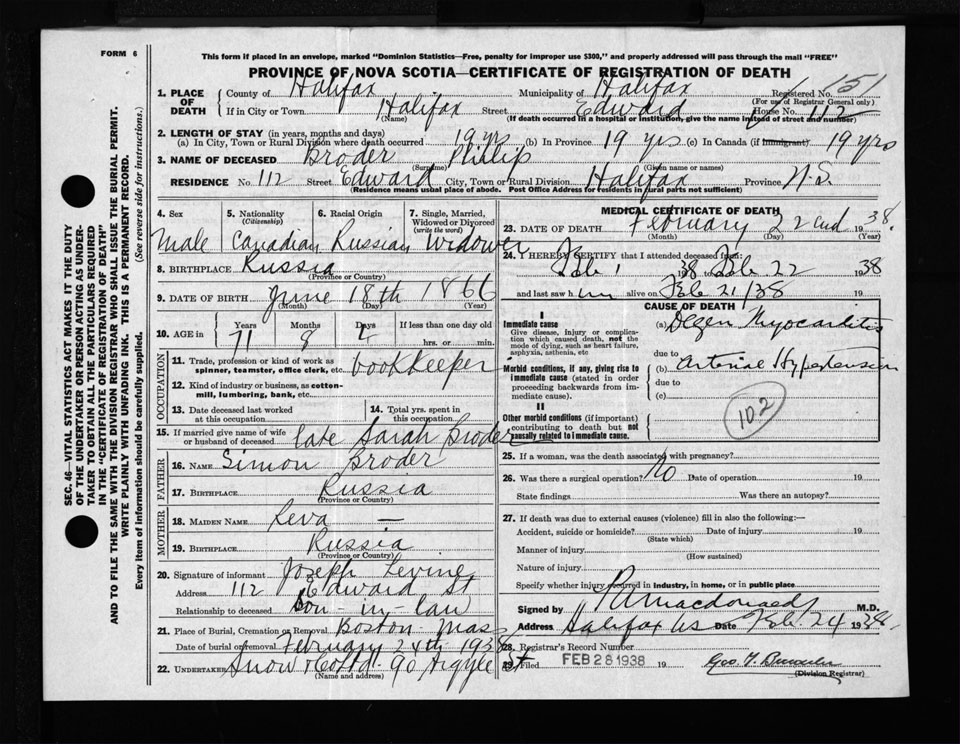 FORM 6
This form if placed in an envelope, marked "Dominion Statistics—Free, penalty for improper use $300," and properly addressed will pass through the mail "FREE"
PROVINCE OF NOVA SCOTIA—CERTIFICATE OF REGISTRATION OF DEATH
1. PLACE OF DEATH County of Halifax Municipality of Halifax Registered No. 151
(For use of Registrar General only)
If in City or Town Halifax Street Edward House No. 112
(Name) (If death occurred in a hospital or institution, give the name instead of street and number)
2. LENGTH OF STAY (in years, months and days)
(a) In City, Town or Rural Division where death occurred 19 yrs (b) In Province 19 yrs (c) In Canada (if immigrant) 19 yrs
3. NAME OF DECEASED Broder Phillip
(Surname) (Given name or names)
RESIDENCE No. 112 Street Edward City, Town or Rural Division Halifax Province N.S.
(Residence means usual place of abode. Post Office Address for residents in rural parts not sufficient)
4. Sex 5. Nationality (Citizenship) 6. Racial Origin 7. Single, Married, Widowed or Divorced (write the word)
Male Canadian Russian Widower
8. BIRTHPLACE Russia
(Province or Country)
9. DATE OF BIRTH June 18th 1866
(Month) (Day) (Year)
10. AGE in Years Months Days If less than one day old
71 8 4 hrs. or min.
OCCUPATION
11. Trade, profession or kind of work as spinner, teamster, office clerk, etc. bookkeeper
12. Kind of industry or business, as cotton-mill, lumbering, bank, etc.
13. Date deceased last worked at this occupation
14. Total yrs. spent in this occupation
15. If married give name of wife or husband of deceased late Sarah Broder
FATHER
16. NAME Simon Broder
17. BIRTHPLACE Russia
(Province or Country)
MOTHER
18. MAIDEN NAME Reva —
19. BIRTHPLACE Russia
(Province or Country)
20. Signature of informant Joseph Levine
Address 112 Edward St
Relationship to deceased Son-in-law
21. Place of Burial, Cremation or Removal Boston Mass
Date of burial or removal February 24th 1938
22. UNDERTAKER Snow & Co Ltd 90 Argyle St
(Name and address)
MEDICAL CERTIFICATE OF DEATH
23. DATE OF DEATH February 22nd 1938
(Month) (Day) (Year)
24. I HEREBY CERTIFY that I attended deceased from:
Feb 1 1938 to Feb 22 1938
and last saw him alive on Feb 21/38 19
CAUSE OF DEATH
I
Immediate cause
Give disease, injury or complication which caused death, not the mode of dying, such as heart failure, asphyxia, asthenia, etc
(a) Degen Myocarditis
due to
Morbid conditions, if any, giving rise to immediate cause (stated in order proceeding backwards from immediate cause).
(b) Arterial Hypertension
due to
(c)
102
II
Other morbid conditions (if important) contributing to death but not causally related to immediate cause.
25. If a woman, was the death associated with pregnancy?
26. Was there a surgical operation? No Date of operation 19
State findings Was there an autopsy?
27. If death was due to external causes (violence) fill in also the following:—
Accident, suicide or homicide? Date of injury 19
(State which)
Manner of injury
(How sustained)
Nature of injury
Specify whether injury occurred in industry, in home, or in public place
Signed by Macdonald M.D.
Address Halifax NS Date Feb 24 1938
28. Registrar's Record Number
29. Filed FEB 28 1938 19
(Division Registrar)
SEC. 46—VITAL STATISTICS ACT MAKES IT THE DUTY
OF THE UNDERTAKER OR PERSON ACTING AS UNDER-
TAKER TO OBTAIN ALL THE PARTICULARS REQUIRED
IN THE "CERTIFICATE OF REGISTRATION OF DEATH"
AND TO FILE THE SAME WITH THE DIVISION REGISTRAR WHO SHALL ISSUE THE BURIAL PERMIT.
WRITE PLAINLY WITH UNFADING INK. THIS IS A PERMANENT RECORD.
Every item of information should be carefully supplied. (See reverse side for instructions.)